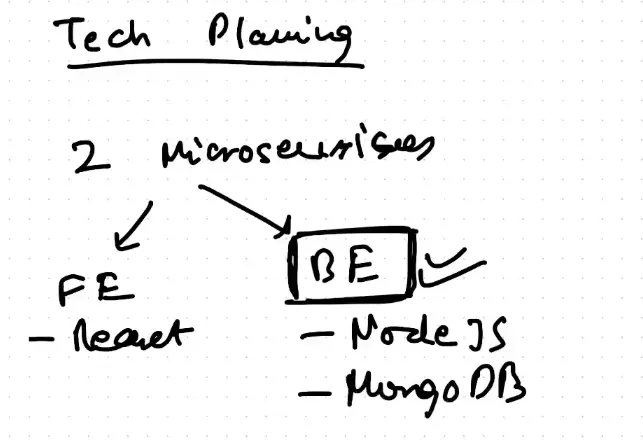 Tech Planning
2 Microservices
FE
BE
- React
- Node JS
- MongoDB